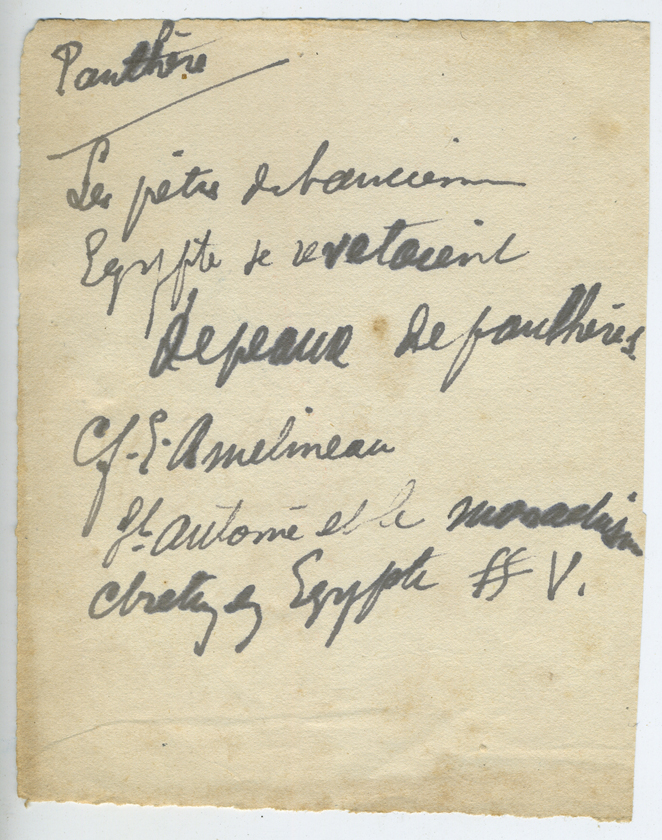 Panthère
Les prêtres de l'ancienne
Egypte se revetaient
de peaux de panthères
Cf. E. Amelineau
St. Antoine et le monachisme
chretien en Egypte §§ V.